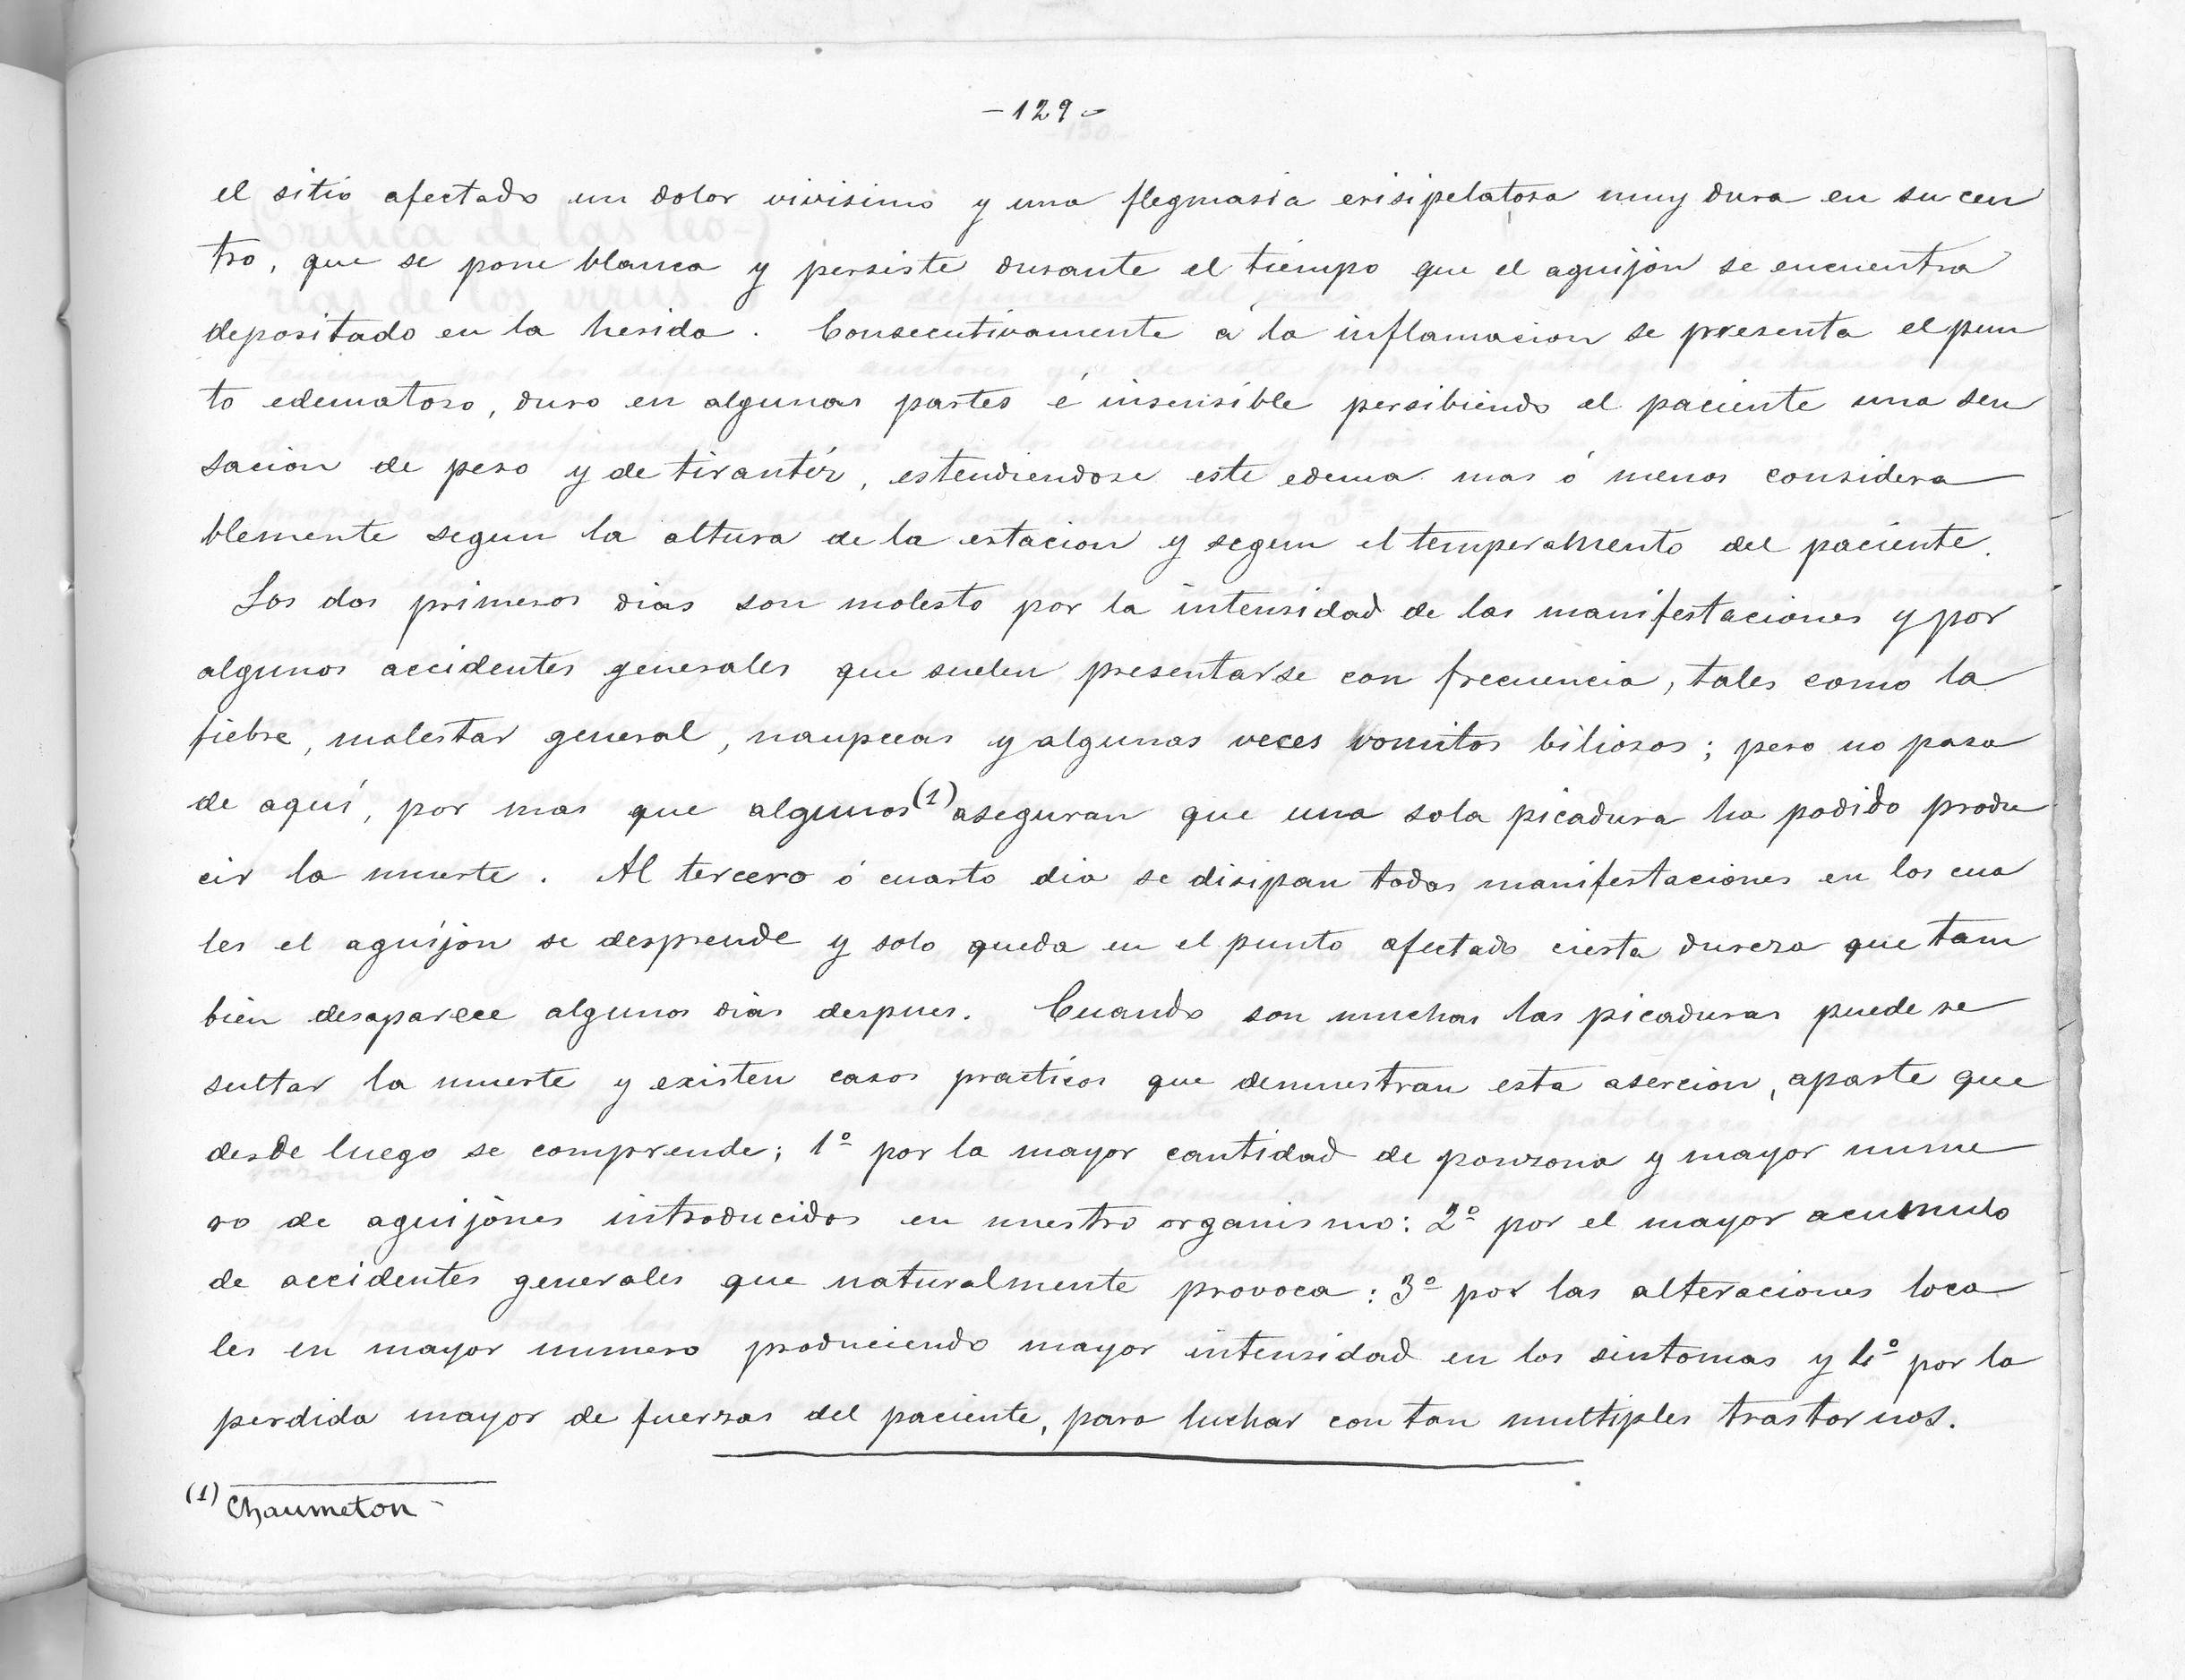 -129-
el sitio afectado un dolor vivisimo y una flegmasia erisipelatosa muy dura en su cen
tro, que se pone blanca y persiste durante el tiempo que el aguijón se encuentra
depositado en la herida. Consecutivamente á la inflamacion se presenta el pun
to edematoso, duro en algunas partes é insensible persibiendo el paciente una sen
sacion de peso y de tirantéz, estendiendose este edema mas ó menos considera
blemente segun la altura de la estacion y segun el temperamento del paciente.
Los dos primeros dias son molesto por la intensidad de las manifestaciones y por
algunos accidentes generales que suelen presentarse con frecuencia, tales como la
fiebre, malestar general, y algunas veces vomitos biliosos; pero no pasa
de aquí, por mas que algunos (1) aseguran que una sola picadura ha podido produ
cir la muerte. Al tercero ó cuarto dia se disipan todas manifestaciones en los cua
les el aguijón se desprende y solo queda en el punto afectado cierta dureza que tam
bien desaparece algunos dias despues. Cuando son muchas las picaduras puede re
sultar la muerte y existen casos practicos que demuestran esta asercion, aparte que
desde luego se comprende; 1º por la mayor cantidad de ponzona y mayor nume
ro de aguijónes introducidos en nuestro organismo: 2º por el mayor acumulo
de accidentes generales que naturalmente provoca: 3º por las alteraciones loca
les en mayor numero produciendo mayor intensidad en los sintomas y 4º por la
perdida mayor de fuerzas del paciente, para luchar con tan multiples trastornos.
(1) Chaumeton-